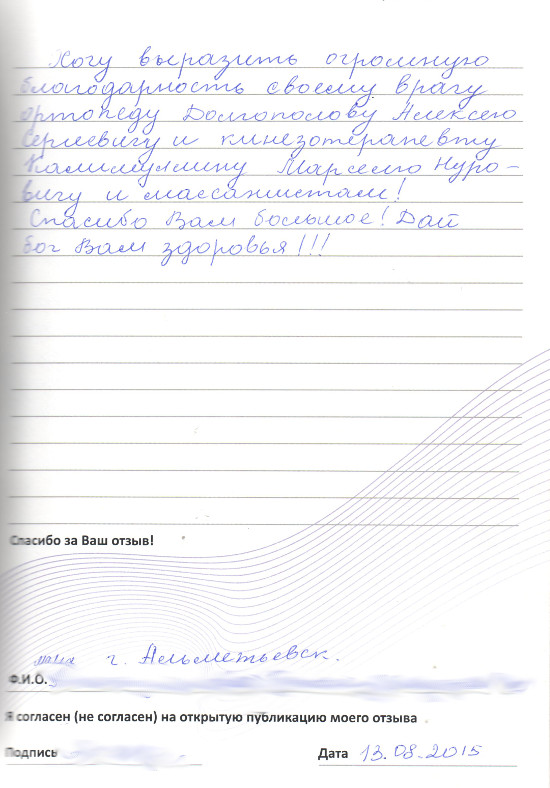 Хочу выразить огромную
благодарность своему врачу
ортопеду Долгополову Алексею
Сергеевичу и кинезотерапевту
Калимуллину Марселю Нуро-
вичу и массажистам!
Спасибо Вам большое! Дай
бог Вам здоровья!!!
Спасибо за Ваш отзыв!
г. Альметьевск.
Ф.И.О.
Я согласен (не согласен) на открытую публикацию моего отзыва
Подпись Дата 13.08.2015